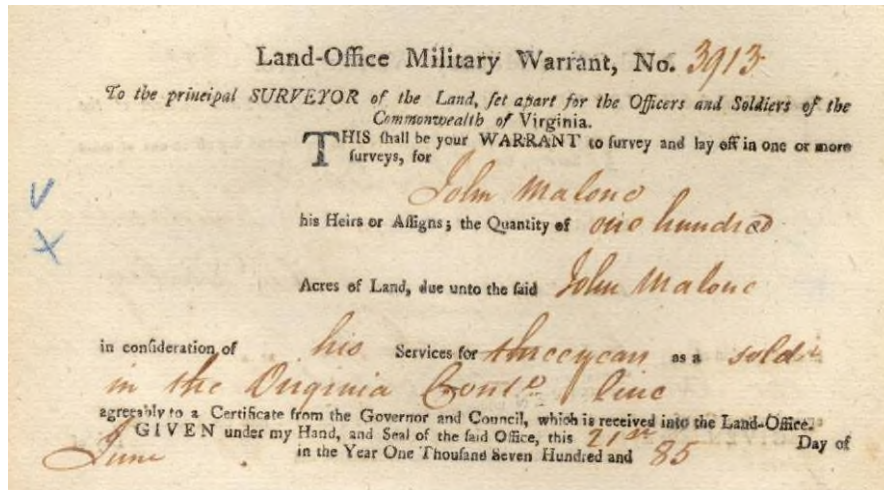 Land-Office Military Warrant, No. 3913
To the principal SURVEYOR of the Land, ſet apart for the Officers and Soldiers of the
Commonwealth of Virginia.
THIS ſhall be your WARRANT to ſurvey and lay off in one or more
ſurveys, for
John Malone
his Heirs or Aſſigns; the Quantity of one hundred
Acres of Land, due unto the ſaid John Malone
in conſideration of his Services for three years as a soldier
in the Virginia Contl. line
agreeably to a Certificate from the Governor and Council, which is received into the Land-Office.
GIVEN under my Hand, and Seal of the ſaid Office, this 21st Day of
June in the Year One Thouſand Seven Hundred and 85